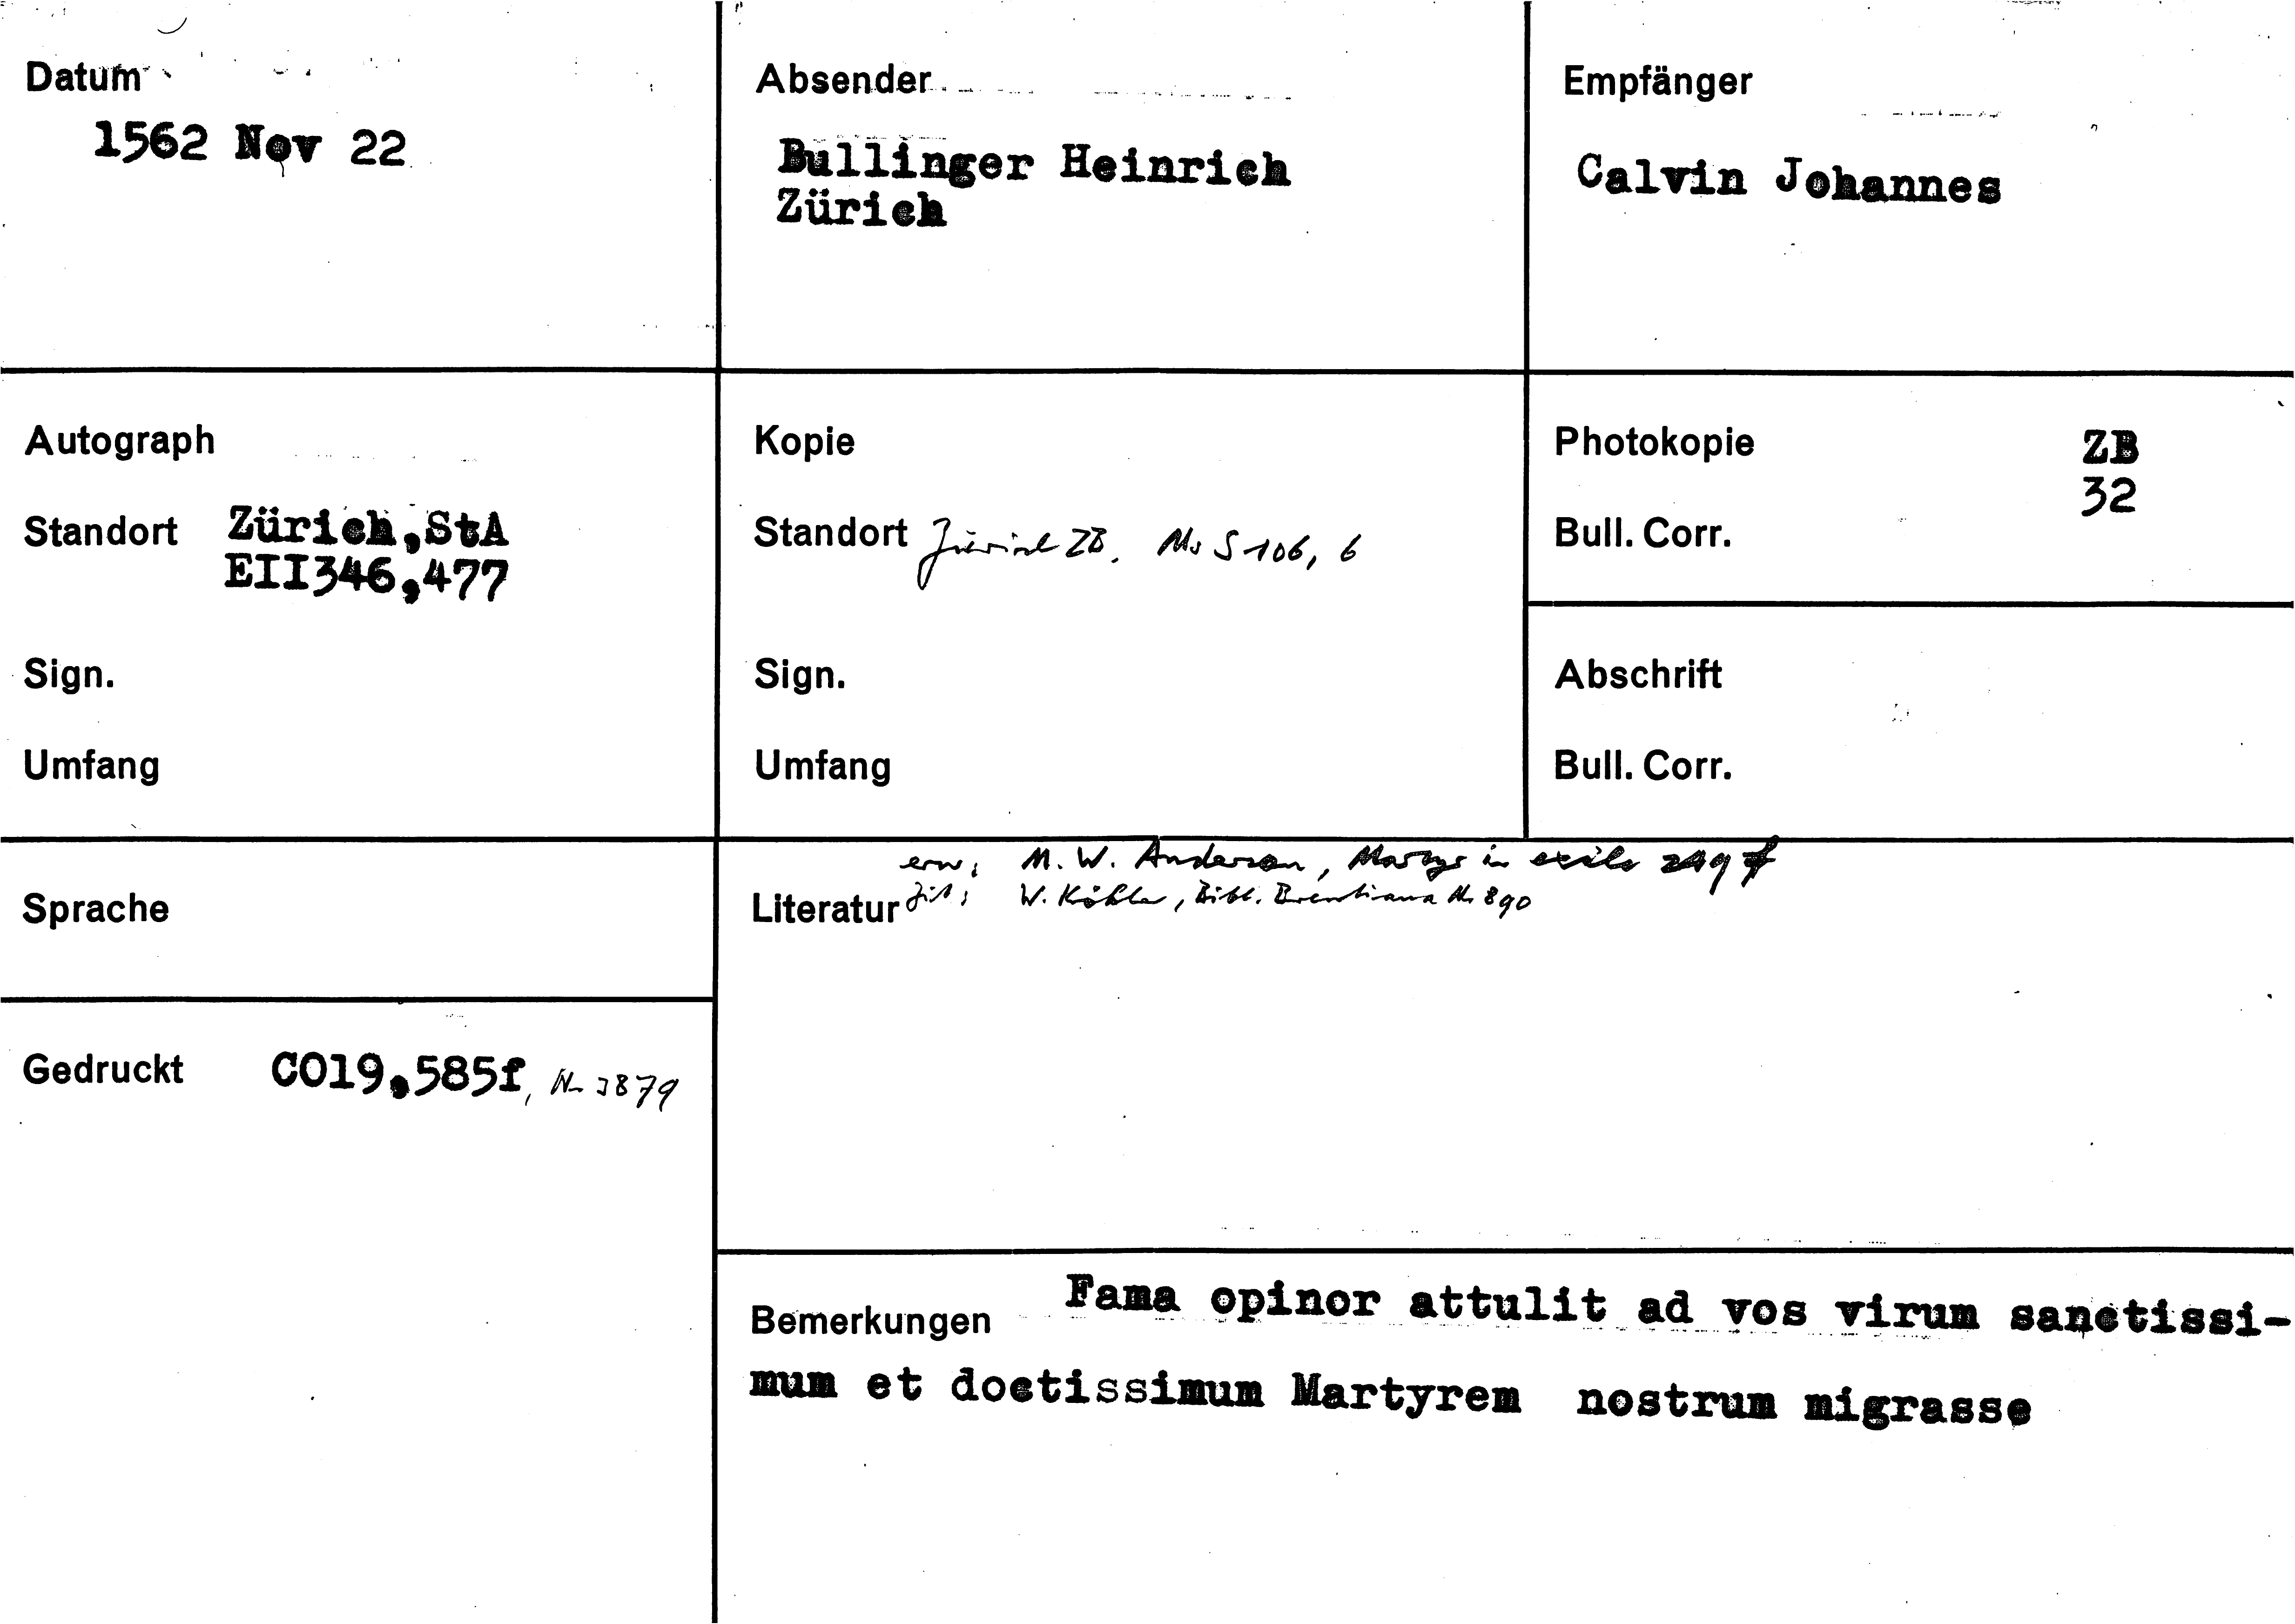 Datum
1562 Nov 22
Absender
Bullinger Heinrich
Zürich
Empfänger
Calvin Johannes
Autograph
Standort Zürich,StA
EII346,477
Sign.
Umfang
Kopie
Standort Zürich ZB, Ms S 106, 6
Sign.
Umfang
Photokopie ZB
32
Bull. Corr.
Abschrift
Bull. Corr.
Sprache
erw: M. W. Anderson, Martyr in exile
Literatur Zit: W. Köhler, Bibl. Brentiana Nr 890
Gedruckt CO19,585f, Nr 3879
Bemerkungen Fama opinor attulit ad vos virum sanctissi-
mum et doctissimum Martyrem nostrum migrasse